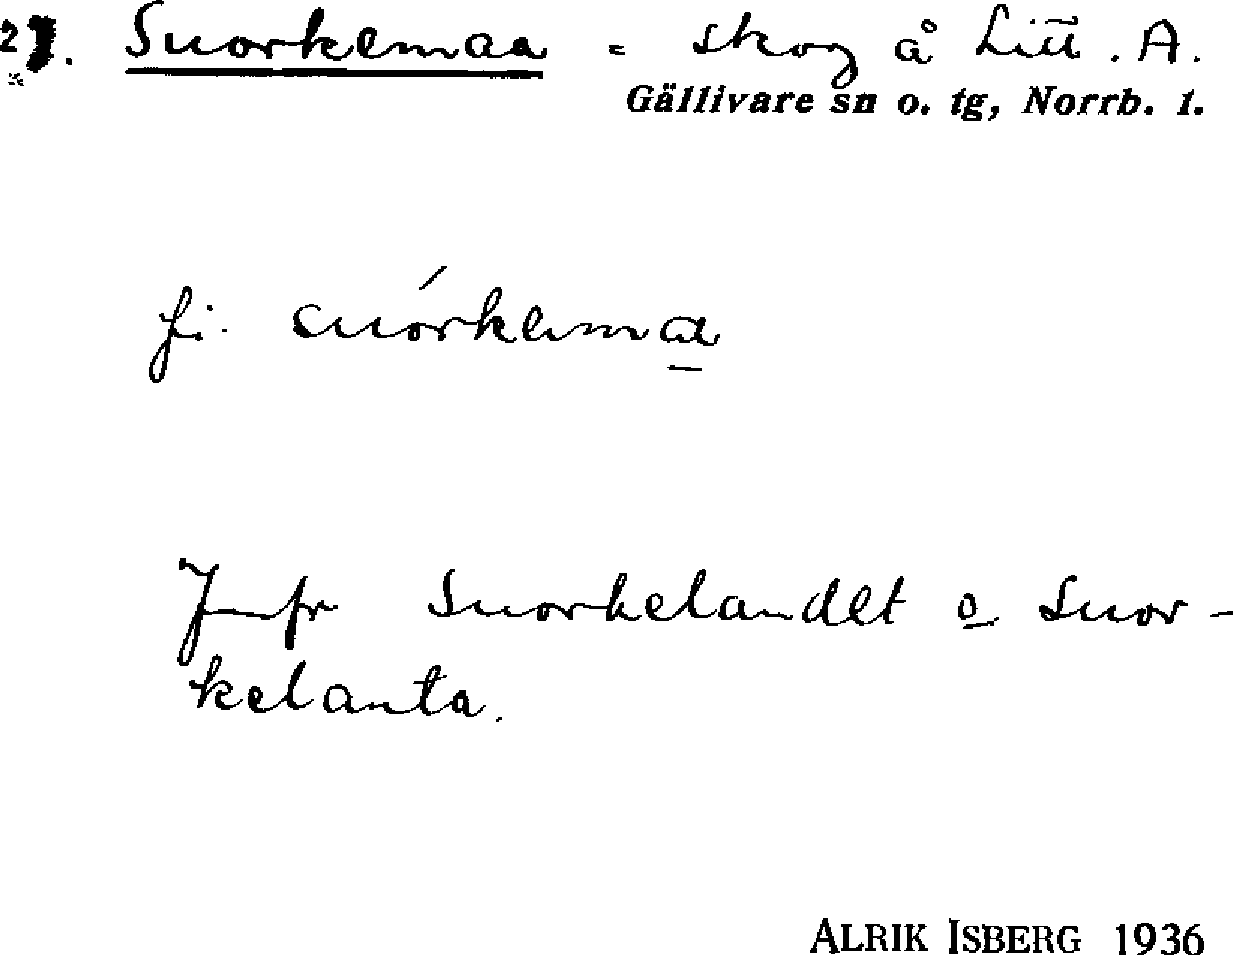 27. Suorkemaa = skog å Litt. A.
Gällivare sn o. tg, Norrb. l.
fi. suórkema
Jmfr Suorkelandet o Suor-
kelanta.
ALRIK ISBERG 1936